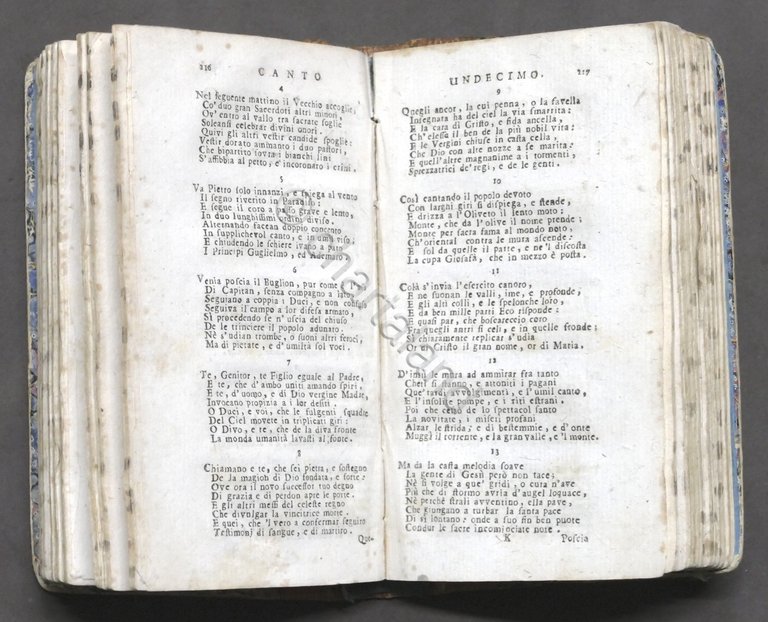 216 CANTO
4
Nel seguente mattino il Vecchio accoglie,
Co' duo gran Sacerdoti altri minori,
Ov' entro al vallo tra sacrate soglie
Soleansi celebrar divini onori.
Quivi gli altri vestir candide spoglie:
Vestir dorato ammanto i duo pastori,
Che bipartito sovra i bianchi lini
S' affibbia al petto, e incoronato i crini.
5
Va Pietro solo innanzi, e spiega al vento
Il segno riverito in Paradiso:
E segue il coro a passo grave e lento,
In duo lunghissimi ordini diviso.
Alternando facean doppio concento
In supplichevol canto, e in umil viso:
E chiudendo le schiere ivano a paro
I Principi Guglielmo, ed Ademaro.
6
Venia poscia il Buglion, pur come è l'uso
Di Capitan, senza compagno a lato:
Seguiano a coppia i Duci, e non confuso
Seguiva il campo a lor difesa armato,
Sì procedendo se n' uscia del chiuso
De le trinciere il popolo adunato.
Nè s' udian trombe, o suoni altri feroci,
Ma di pietate, e d' umiltà sol voci.
7
Te, Genitor, te Figlio eguale al Padre,
E te, che d' ambo uniti amando spiri,
E te, d' uomo, e di Dio vergine Madre,
Invocano propizia a i lor desiri.
O Duci, e voi, che le fulgenti squadre
Del Ciel movete in triplicati giri:
O Divo, e te, che de la diva fronte
La monda umanità lavasti al fonte.
8
Chiamano e te, che sei pietra, e sostegno
De la magion di Dio fondata, e forte:
Ove ora il novo successor tuo degno
Di grazia e di perdon apre le porte.
E gli altri messi del celeste regno
Che divulgar la vincitrice morte.
E quei, che 'l vero a confermar seguiro
Testimonj di sangue, e di martiro.
Que-
UNDECIMO. 217
9
Quegli ancor, la cui penna, o la favella
Insegnata ha del ciel la via smarrita:
E la cara di Cristo, e fida ancella,
Ch' elesse il ben de la più nobil vita:
E le Vergini chiuse in casta cella,
Che Dio con alte nozze a se marita:
E quell' altre magnanime a i tormenti,
Sprezzatrici de' regi, e de le genti.
10
Così cantando il popolo devoto
Con larghi giri si dispiega, e stende,
E drizza a l' Oliveto il lento moto:
Monte, che da l' olive il nome prende;
Monte per sacra fama al mondo noto,
Ch' oriental contra le mura ascende:
E sol da quelle il parte, e ne 'l discosta
La cupa Giosafà, che in mezzo è posta.
11
Colà s' invia l' esercito canoro,
E ne suonan le valli, ime, e profonde,
E gli alti colli, e le spelonche loro,
E da ben mille parti Eco risponde:
E quasi par, che boscareccio coro
Fra quegli antri si celi, e in quelle fronde:
Sì chiaramente replicar s' udia
Or di Cristo il gran nome, or di Maria.
12
D' in su le mura ad ammirar fra tanto
Cheti si stanno, e attoniti i pagani
Que' tardi avvolgimenti, e l' umil canto,
E l' insolite pompe, e i riti estrani.
Poi che cessò de lo spettacol santo
La novitate, i miseri profani
Alzar le strida; e di bestemmie, e d' onte
Muggì il torrente, e la gran valle, e 'l monte.
13
Ma da la casta melodia soave
La gente di Gesù però non tace;
Nè si volge a que' gridi, o cura n' ave
Più che di stormo avria d' augei loquace,
Nè perchè strali avventino, ella pave,
Che giungano a turbar la santa pace
Di sì lontano: onde a suo fin ben puote
Condur le sacre incominciate note.
K Poscia